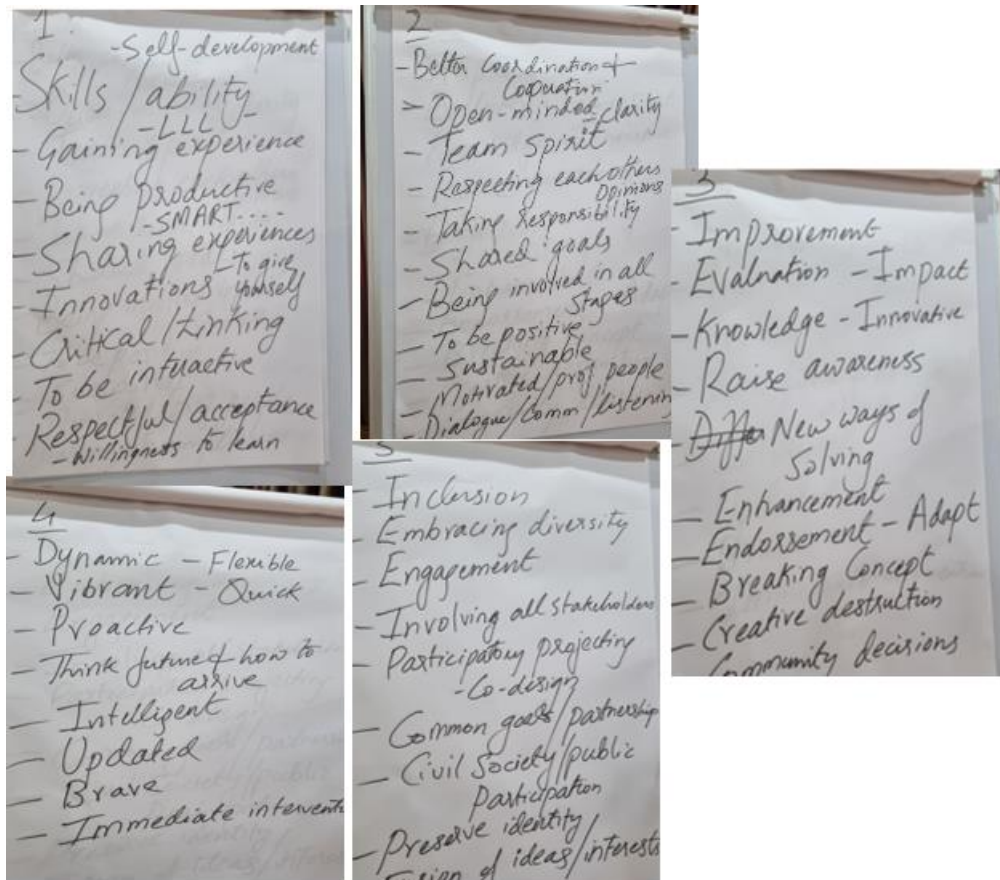 1.
- Self-development
- Skills / ability
- LLL -
- Gaining experience
- Being productive
- SMART....
- Sharing experiences
- To give
- Innovations yourself
- Critical / tinking
- To be interactive
- Respectful / acceptance
- Willingness to learn
2
- Better coordination +
Cooperation
- Open-minded - clarity
- Team Spirit
- Respecting each others
opinions
- Taking responsibility
- Shared goals
- Being involved in all
stages
- To be positive
- Sustainable
- Motivated / prof people
- Dialogue / comm / listening
3
- Improvement
- Evaluation - Impact
- Knowledge - Innovative
- Raise awareness
- New ways of
Solving
- Enhancement
- Endorsement - Adapt
- Breaking Concept
- Creative destruction
Community decisions
4
- Dynamic - Flexible
- Vibrant - Quick
- Proactive
- Think future & how to
arrive
- Intelligent
- Updated
- Brave
- Immediate interventi
5
- Inclusion
- Embracing diversity
- Engagement
- Involving all stakeholders
- Participatory projecting
- Co-design
- Common goals / partnership
- Civil Society / public
Participation
- Preserve identity /
of ideas / interests